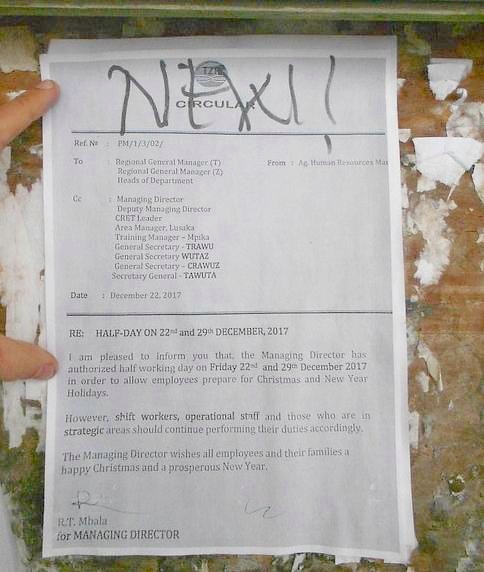 NEW!!
CIRCULAR
Ref. No : PM/1/3/02/
To : Regional General Manager (T) From : Ag. Human Resources Man
Regional General Manager (Z)
Heads of Department
Cc : Managing Director
Deputy Managing Director
CRET Leader
Area Manager, Lusaka
Training Manager – Mpika
General Secretary - TRAWU
General Secretary WUTAZ
General Secretary – CRAWUZ
Secretary General - TAWUTA
Date : December 22, 2017
RE: HALF-DAY ON 22nd and 29th DECEMBER, 2017
I am pleased to inform you that, the Managing Director has
authorized half working day on Friday 22nd and 29th December 2017
in order to allow employees prepare for Christmas and New Year
Holidays.
However, shift workers, operational staff and those who are in
strategic areas should continue performing their duties accordingly.
The Managing Director wishes all employees and their families a
happy Christmas and a prosperous New Year.
R.T. Mbala
for MANAGING DIRECTOR